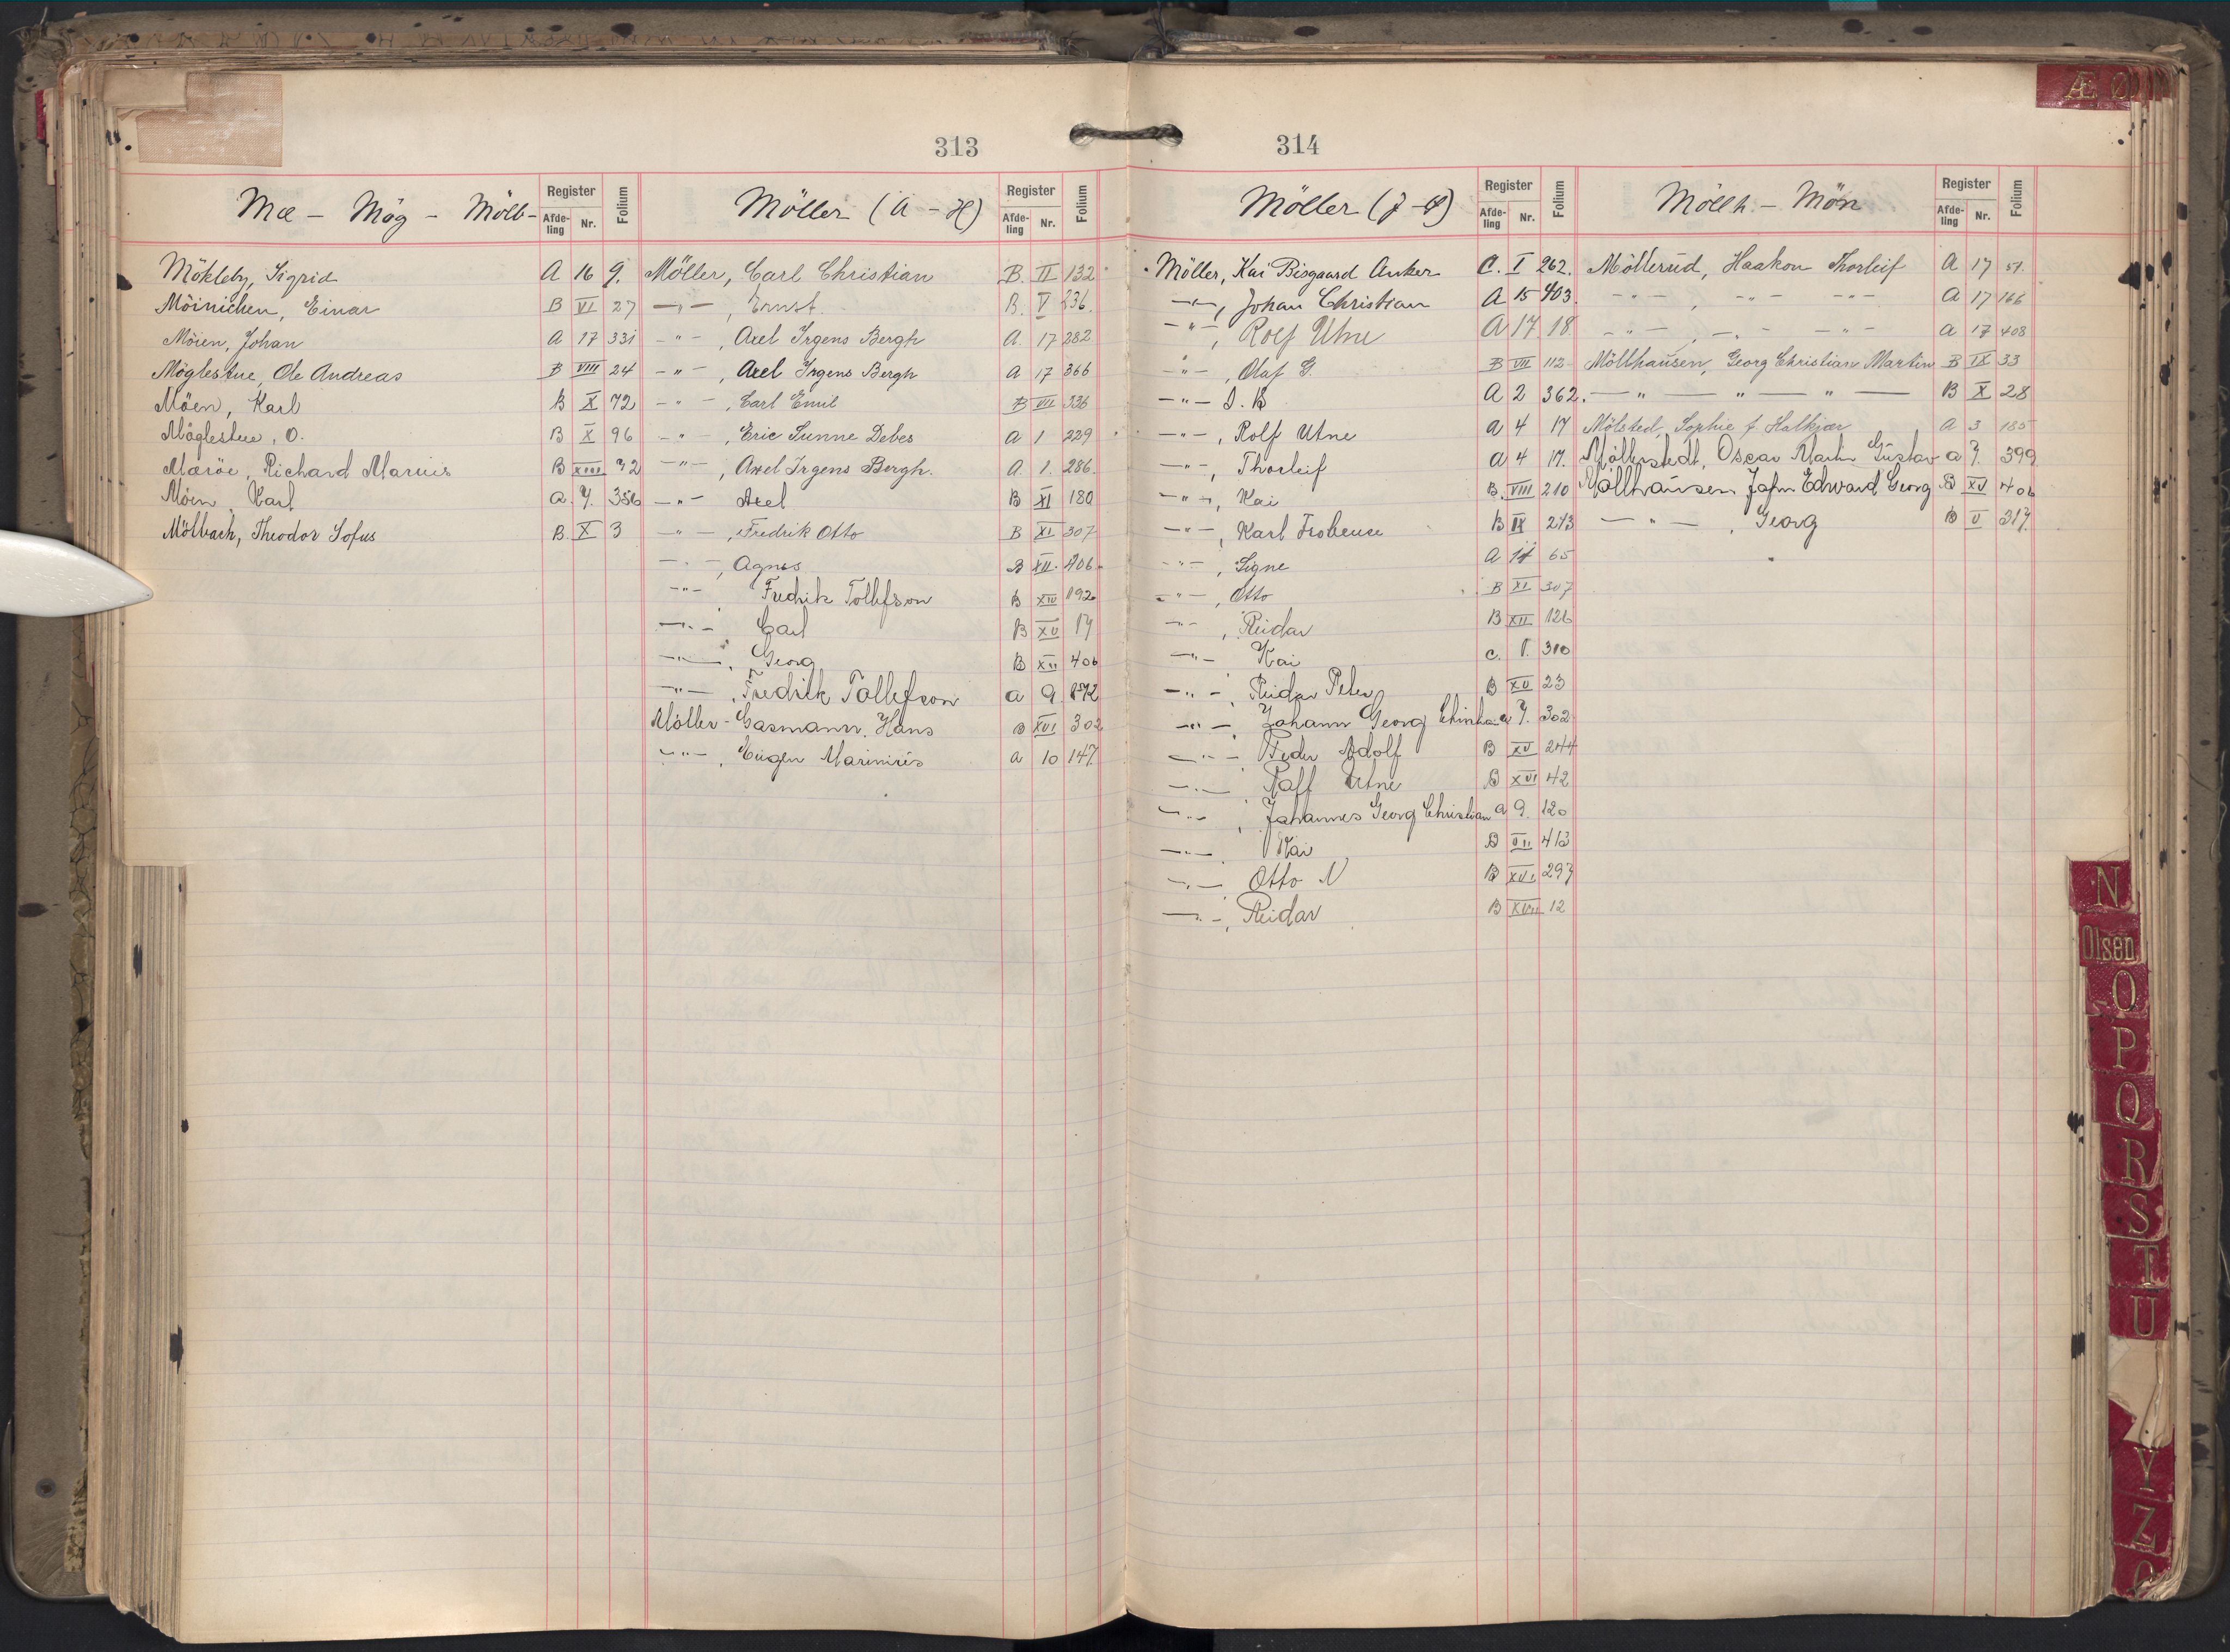 Æ Ø
313
Mæ - Mög - Möllb-
Register
Afde-ling
Nr.
Folium
Mökleby, Sigrid A 16 9.
Möinichen, Einar B VI 27
Möien, Johan A 17 331
Möglestue, Ole Andreas B VIII 24
Möen, Karl B X 72
Möglestue, O. B X 96
Mæröe, Richard Marius B XIII 72
Möen, Karl a. 7. 356
Mölbach, Theodor Sofus B. X 3
Möller (A - H)
Register
Afde-ling
Nr.
Folium
Möller, Carl Christian B. II 132
-"-, Ernst. B. V 236.
-"-, Axel Irgens Bergh A. 17 282
-"-, Axel Irgens Bergh A 17 366
-"-, Carl Emil B VII 336
-"-, Eric Sunne Debes a 1 229
-"-, Axel Irgens Bergh. a. 1. 286.
-"- Axel B XI 180
-"-, Fredrik Otto B XI 307
-"-, Agnes B XII. 406.
-"-, Fredrik Tollefson B XIV 192
-"-, Carl B XV 17
-"-, Georg B XII 406
-"-, Fredrik Tollefson a 9. 172
Möller-Gasmann, Hans B XVI 302
-"-, Eugen Marinius a 10 147.
314
Möller (J - Ø)
Register
Afde-ling
Nr.
Folium
Möller, Kai Bisgaard Anker C. I 262.
-"-, Johan Christian A 15 403.
-"-, Rolf Utne A 17. 18.
-"-, Olaf G. B VII 112
-"- D. B. A 2 362.
-"-, Rolf Utne a 4 17
-"-, Thorleif a 4 17.
-"-, Kai B. VIII 210
-"-, Karl B IX 243
-"-, Signe A 65
-"-, Otto B XI 307
-"-, Reidar B XII 126
-"- Kai C. 1. 310
-"-, Reidar Peter B XV 23
-"-, Johann Georg a 7. 302
-"- Peder Adolf B XV 244
-"-, Rolf Utne B XVI 42
-"-, Johannes Georg Christian a 9. 120
-"-, Kai B VII 413
-"-, Otto N B XVI 297
-"-, Reidar B XVII 12
Möllh. - Mön
Register
Afde-ling
Nr.
Folium
Möllerud, Haakon Thorleif A 17 51.
-"-, -"- -"- A 17 166
-"-, -"- -"- A 17 408
Möllhausen, Georg Christian Martin B IX 33
-"- -"- -"- B X 28
Mölsted, Sophie f. Halkjær A 3 185
Möllerstedt, Oscar Martin Gustav a 7. 399
Möllhausen John Edward Georg B XV 406
-"-, Georg B V 317.
N
Olsen
O
P
Q
R
S
T
U
Y
Z